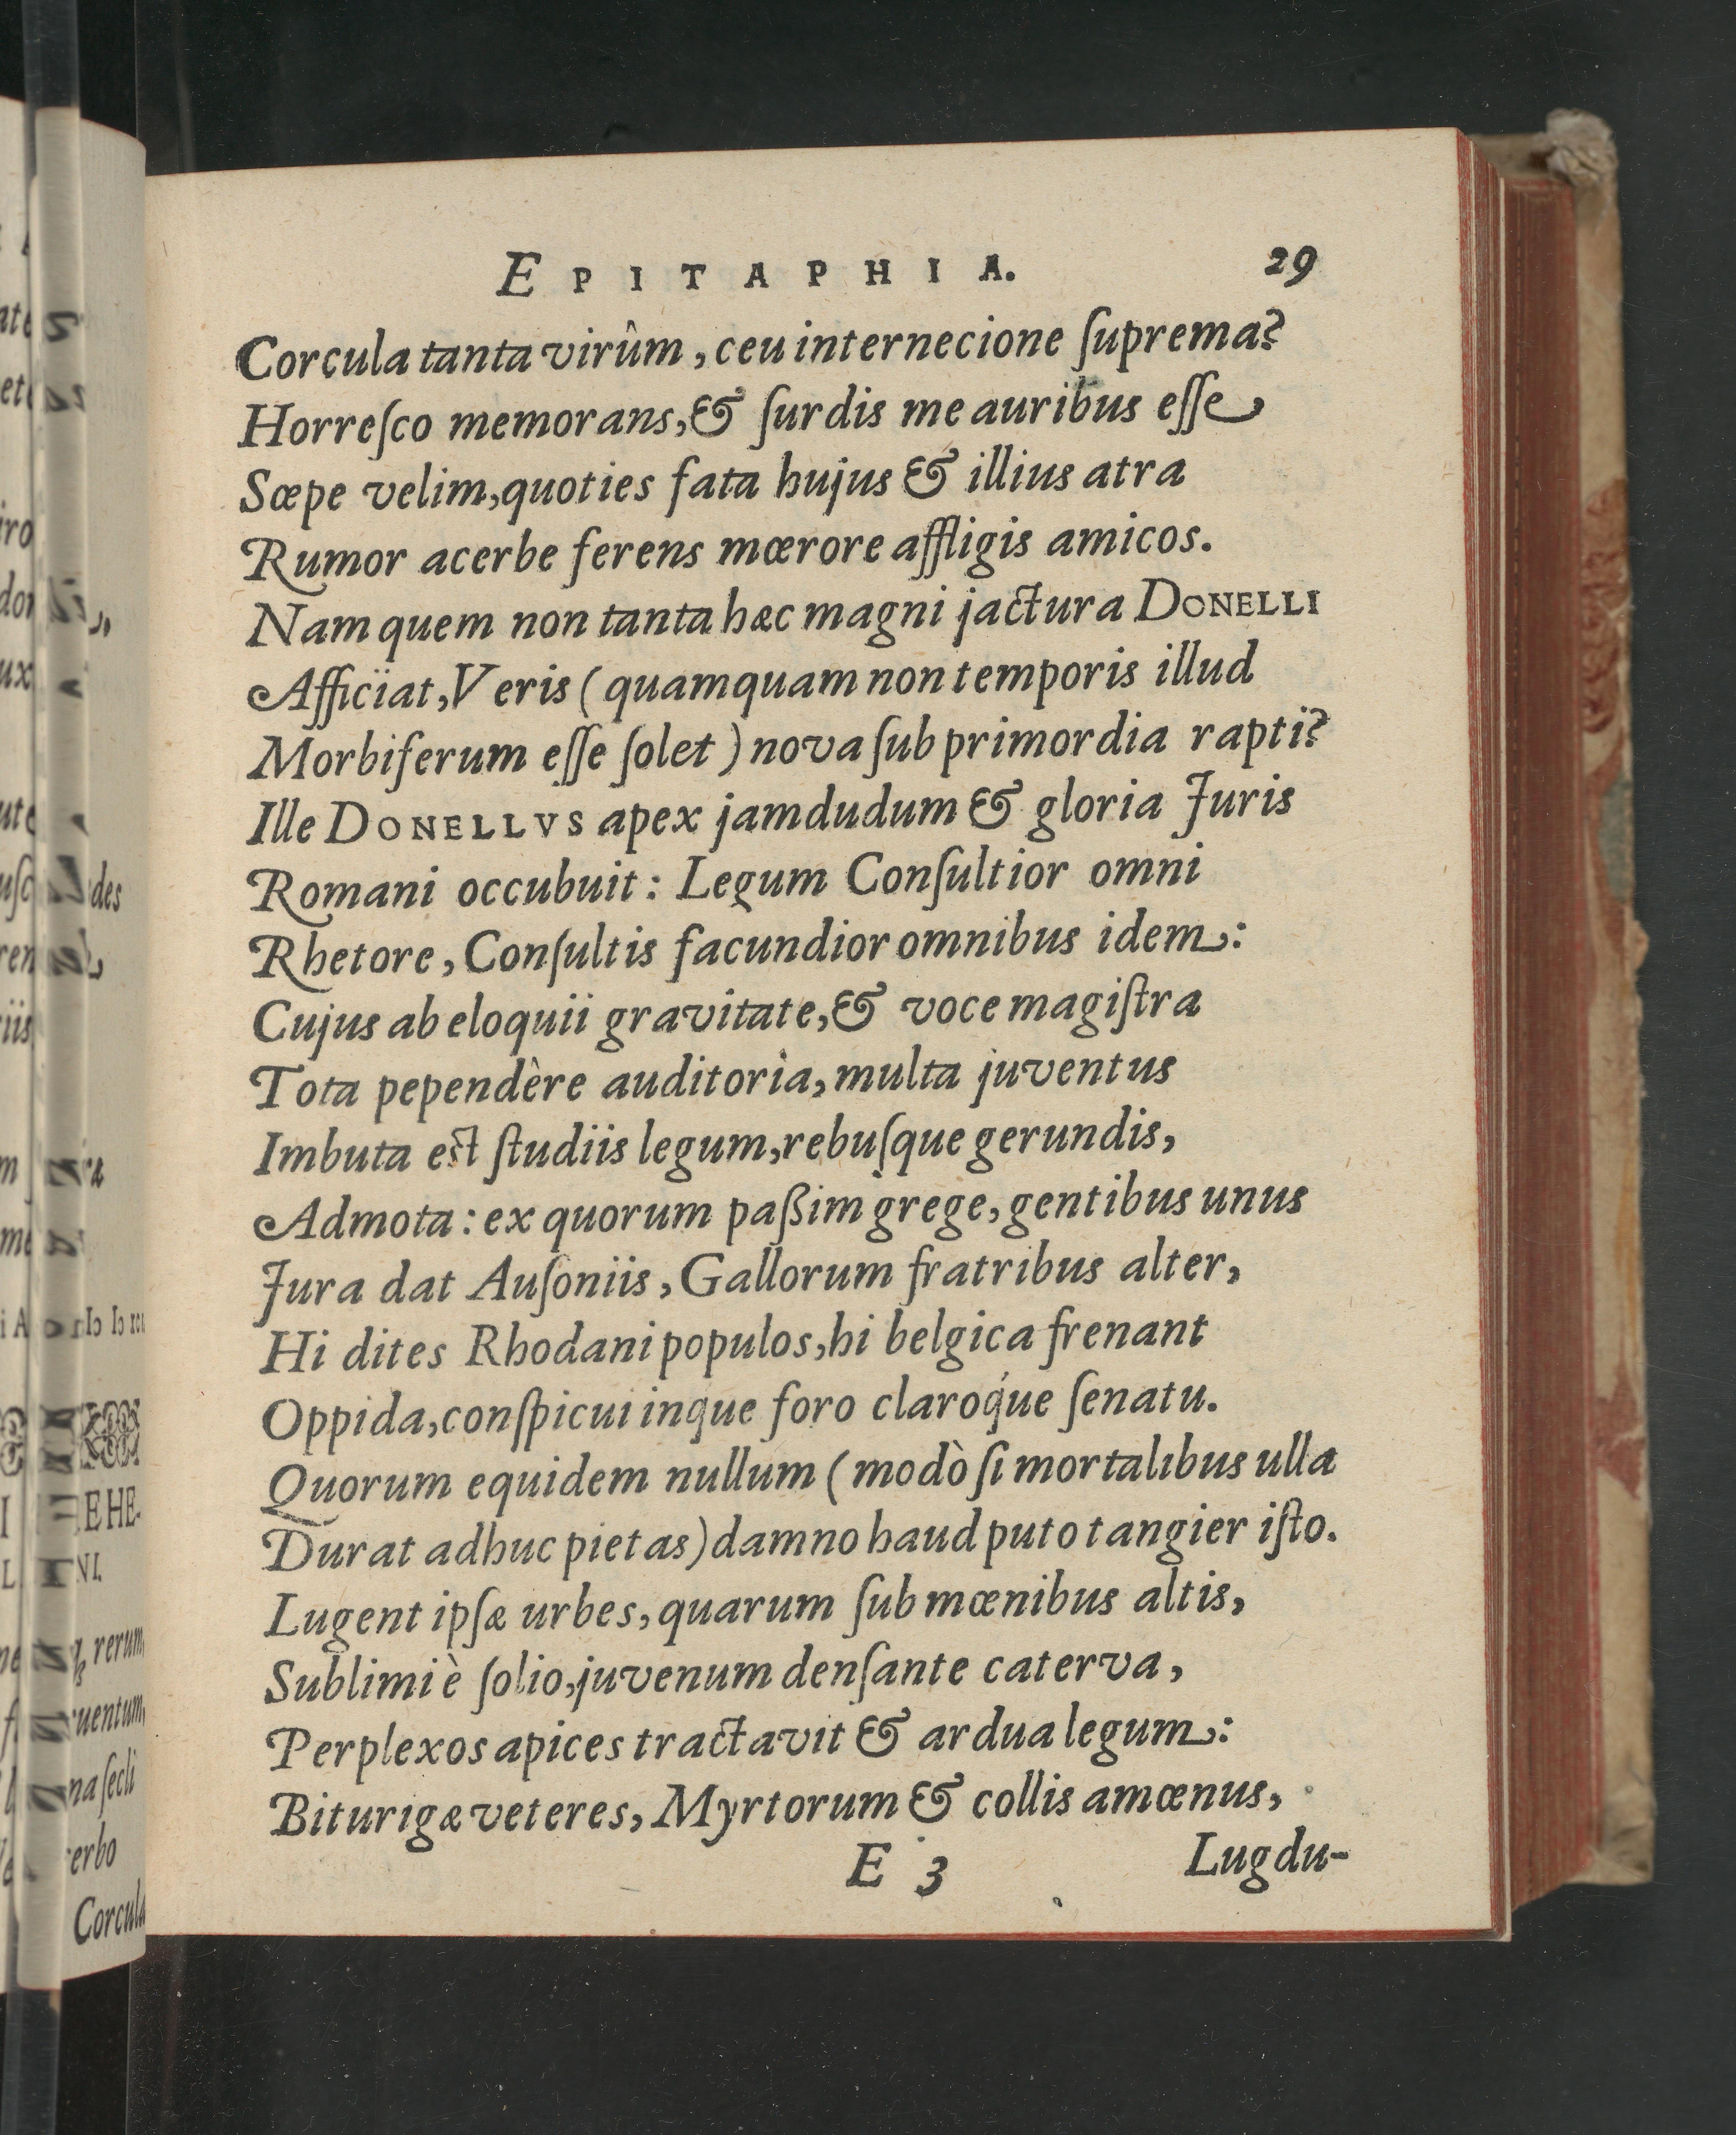 EPITAPHIA. 29
Corcula tanta virûm, ceu internecione ſuprema?
Horreſco memorans, & ſurdis me auribus eſſe
Sœpe velim, quoties fata hujus & illius atra
Rumor acerbe ferens mœrore affligis amicos.
Nam quem non tanta hæc magni jactura DONELLI
Afficïat, Veris (quamquam non temporis illud
Morbiferum eſſe ſolet) nova ſub primordia rapti?
Ille DONELLVS apex jamdudum & gloria Juris
Romani occubuit: Legum Conſultior omni
Rhetore, Conſultis facundior omnibus idem:
Cujus ab eloquii gravitate, & voce magiſtra
Tota pependêre auditoria, multa juventus
Imbuta est ſtudiis legum, rebuſque gerundis,
Admota: ex quorum paßim grege, gentibus unus
Jura dat Auſoniis, Gallorum fratribus alter,
Hi dites Rhodani populos, hi belgica frenant
Oppida, conſpicui inque foro claroq́ue ſenatu.
Quorum equidem nullum (modò ſi mortalibus ulla
Durat adhuc pietas) damno haud puto tangier iſto.
Lugent ipſæ urbes, quarum ſub mœnibus altis,
Sublimi è ſolio, juvenum denſante caterva,
Perplexos apices tractavit & ardua legum:
Biturigæ veteres, Myrtorum & collis amœnus,
E 3 Lugdu-